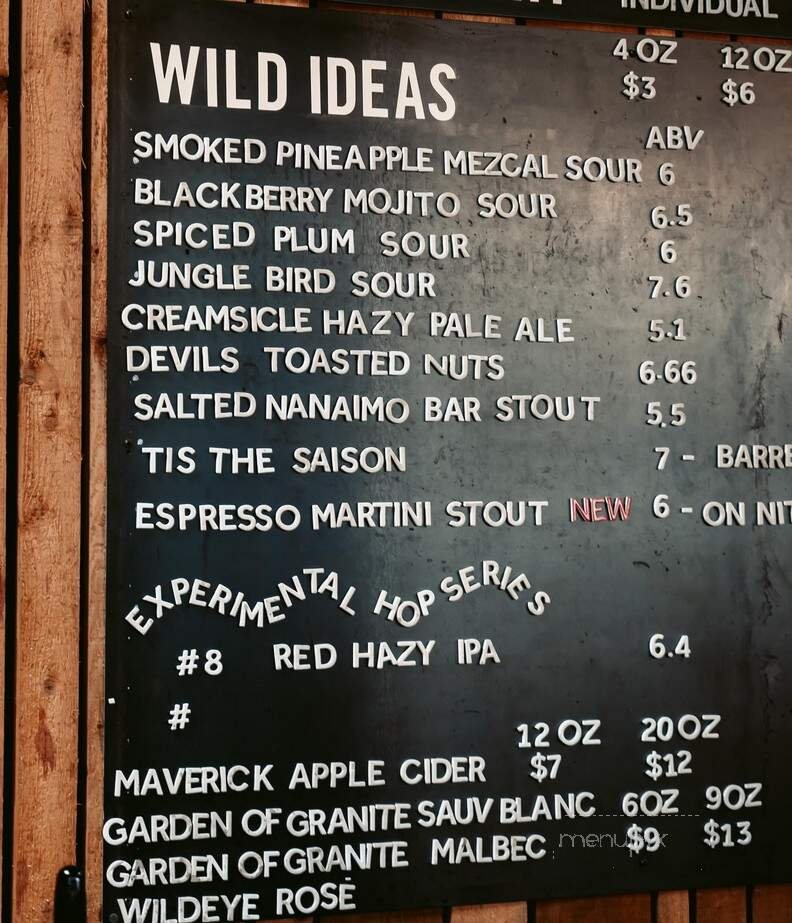 INDIVIDUAL
WILD IDEAS 4 OZ 12 OZ
$3 $6
ABV
SMOKED PINEAPPLE MEZCAL SOUR 6
BLACKBERRY MOJITO SOUR 6.5
SPICED PLUM SOUR 6
JUNGLE BIRD SOUR 7.6
CREAMSICLE HAZY PALE ALE 5.1
DEVILS TOASTED NUTS 6.66
SALTED NANAIMO BAR STOUT 5.5
'TIS THE SAISON 7 - BARRE
ESPRESSO MARTINI STOUT NEW 6 - ON NIT
EXPERIMENTAL HOP SERIES
#8 RED HAZY IPA 6.4
#
12 OZ 20 OZ
MAVERICK APPLE CIDER $7 $12
GARDEN OF GRANITE SAUV BLANC 6OZ 9OZ
GARDEN OF GRANITE MALBEC $9 $13
WILDEYE ROSE